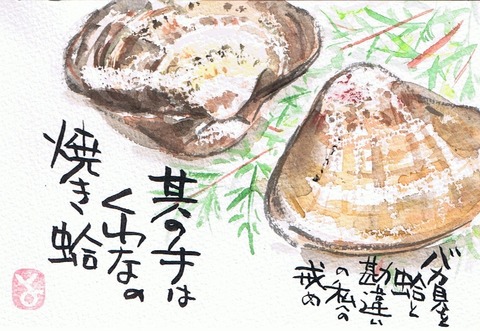 其の手は
くわなの
焼き蛤
バカ貝を
蛤と
勘違い
の私の
戒め